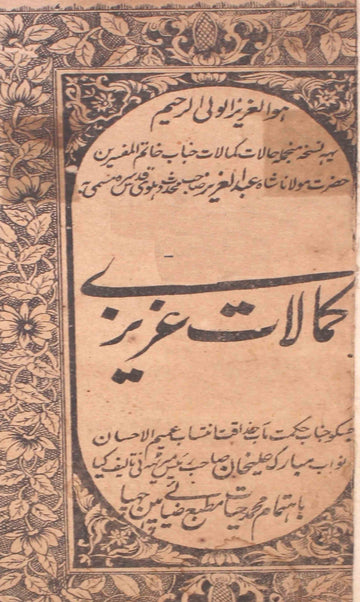 ہو العزیز الولی الرحیم
یہ نسخہ منجملہ حالات کمالات جناب خاتم المفسرین
حضرت مولانا شاہ عبد العزیز صاحب محدث دہلوی قدس سرہ مسمی بہ
کمالات عزیزی
جسکو جناب حکمت مآب انتساب عمیم الاحسان
نواب مبارک علیخان صاحب رئیس میرٹھی تالیف کیا
باہتمام محمد حیات مطبع ضیائی مین چھپا